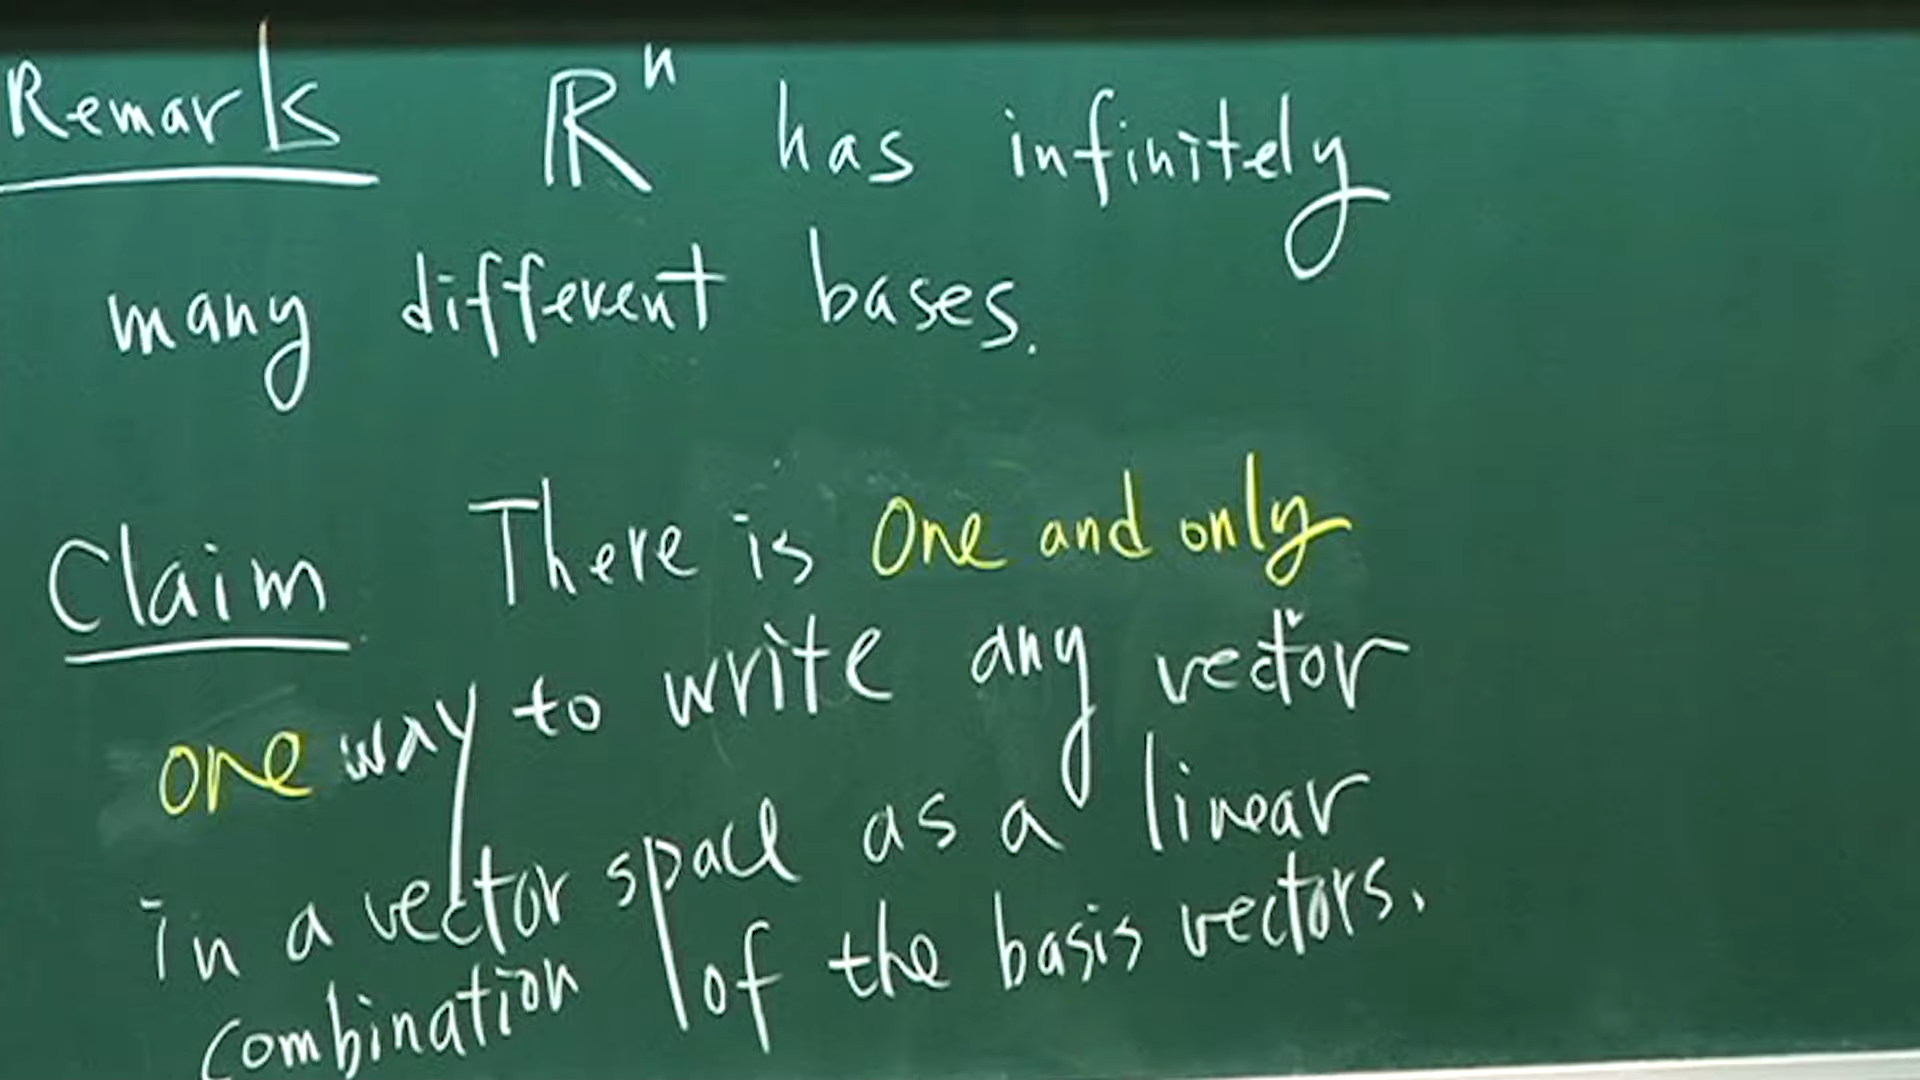 Remark ℝⁿ has infinitely
many different bases.
Claim There is One and only
one way to write any vector
in a vector space as a linear
combination of the basis vectors.